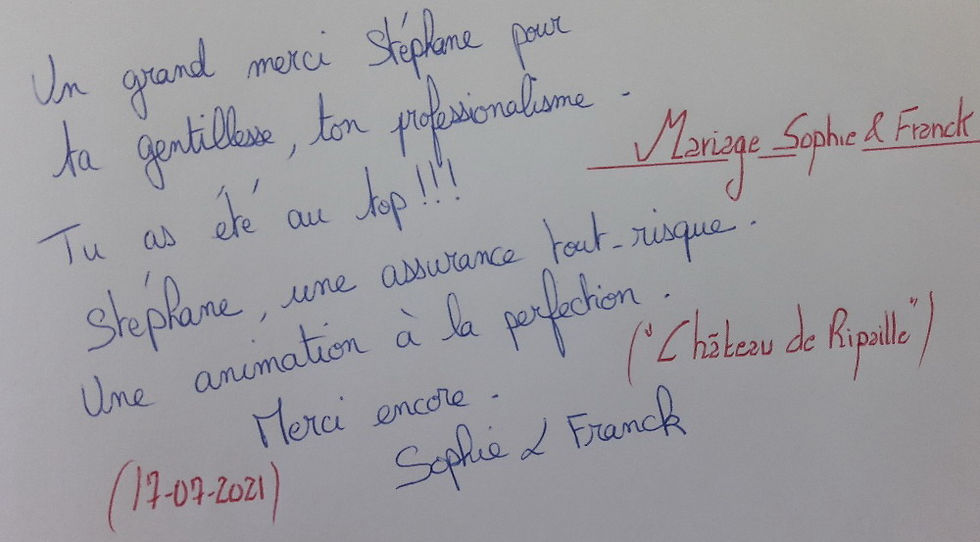 Un grand merci Stéphane pour
ta gentillesse, ton professionalisme.
Mariage Sophie & Franck
Tu as été au top!!!
Stéphane, une assurance tout-risque.
Une animation à la perfection.
("Château de Ripaille")
Merci encore.
Sophie & Franck
(17-07-2021)